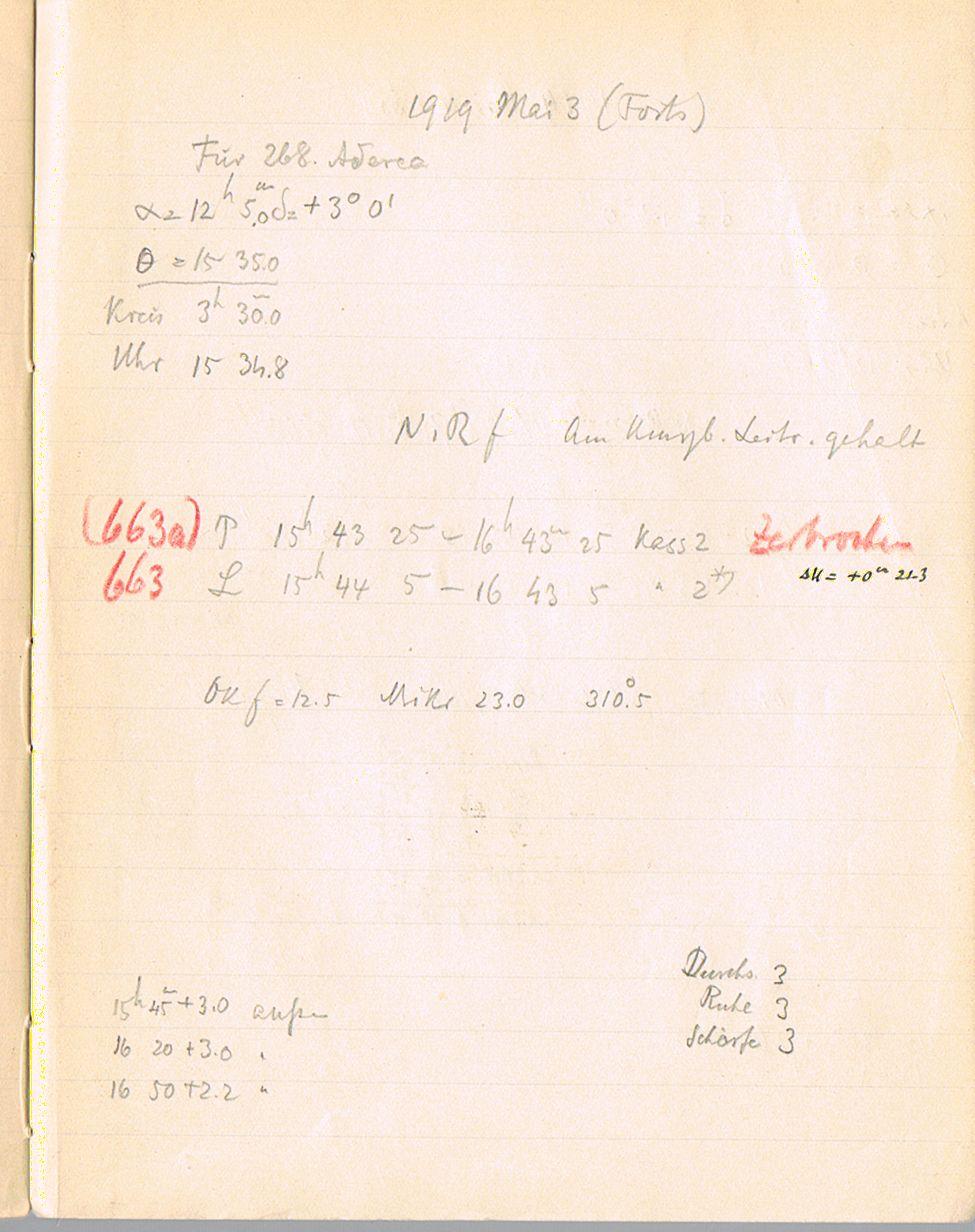 1919 Mai 3 (Forts)
Für 268. Adorea
α = 12ʰ 5.ᵐ0 δ = +3° 0'
θ = 15 35.0
Kreis 3ʰ 30.ᵐ0
Uhr 15 34.8
N.R f Am gehalt
(663a) T 15ʰ 43 25 – 16ʰ 43ᵐ 25 Kass 2 Zerbrochen
663 L 15ʰ 44 5 – 16 43 5 " 2*)
ΔU = +0ᵐ 21.3
OK f = 12.5 Mikr 23.0 310.°5
Durchs. 3
Ruhe 3
Schärfe 3
15ʰ 45ᵐ +3.0 außen
16 20 +3.0 "
16 50 +2.2 "